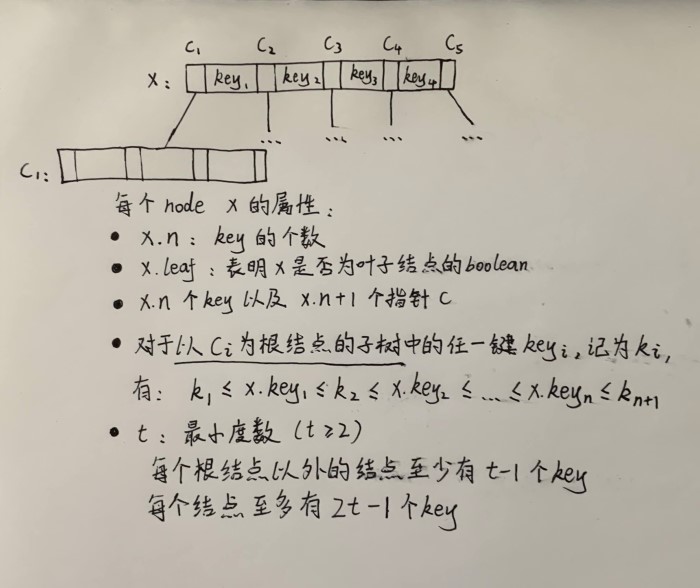 C₁ C₂ C₃ C₄ C₅
x: key₁ key₂ key₃ key₄
... ... ... ...
C₁:
每个 node x 的属性:
• x.n: key 的个数
• x.leaf: 表明 x 是否为叶子结点的boolean
• x.n 个 key 以及 x.n+1 个指针 C
• 对于以 Cᵢ 为根结点的子树中的任一键 keyᵢ, 记为 kᵢ,
有: k₁ ≤ x.key₁ ≤ k₂ ≤ x.key₂ ≤ ... ≤ x.keyₙ ≤ kₙ₊₁
• t: 最小度数 (t≥2)
每个根结点以外的结点至少有 t-1 个key
每个结点至多有 2t-1 个key